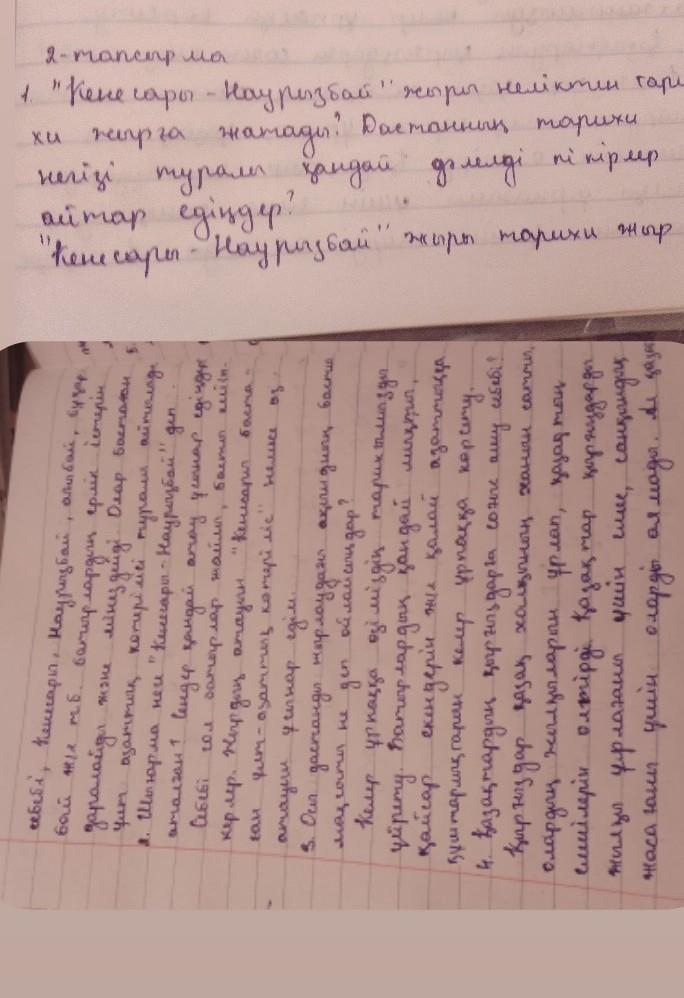 2-тапсырма
1. "Кенесары-Наурызбай" жыры неліктен тари
хи жырға жатады? Дастанның тарихи
негізі туралы қандай дәлелді пікірлер
айтар едіңдер?
"Кенесары-Наурызбай" жыры тарихи жыр
себебі, Кенесары, Наурызбай, ағыбай, бұхар
бай және т.б. батырлардың ерлік істерін
даралайды және мінездейді. Олар бастаған
ұлт азаттық көтерілісі туралы айтылады.
2. Шығарма неге "Кенесары-Наурызбай" деп
аталған? Сендер қандай атау ұсынар едіңдер
Себебі сол батырлар жайлы, басты кейіп-
керлер. Жырдың атауын "Кенесары баста-
ған ұлт-азаттық көтеріліс" немесе өз
атауын ұсынар едім.
3. Осы дастанды жырлаудағы ақындық басты
мақсаты не деп ойлайсыңдар?
Келер ұрпаққа өзіміздің тарихымызды
үйрету. Батырлардың қандай мықты,
қайсар екендерін және қалай азаттыққа
құштарлықтарын келер ұрпаққа көрсету.
4. Қазақтардың қырғыздарға соғыс ашу себебі?
Қырғыздар қазақ халқының жанын сатты,
олардың жылқыларын ұрлап, қазақтың
елшілерін өлтірді. Қазақтар қырғыздарды
жылқы ұрлағаны үшін емес, сатқындық
жасағаны үшін оларды аямады. Ал қаза